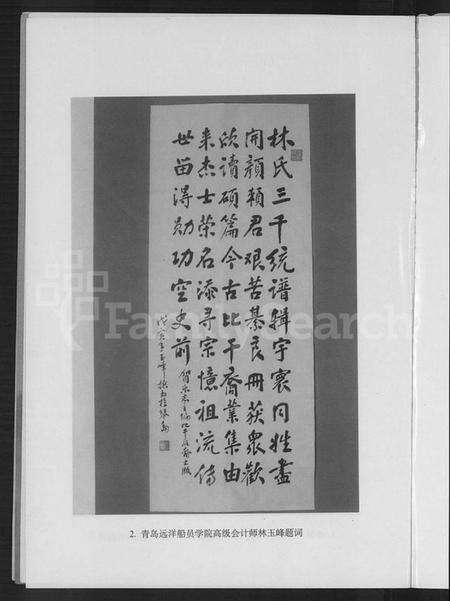 林氏三千统谱辑宇寰同姓尽
开颜赖君艰苦綦良册获众欢
欣读硕篇今古比干裔業集由
来杰士荣名添寻宗憶祖流传
世留得勋功空史前
2. 青岛远洋船员学院高级会计师林玉峰题词
FamilySearch